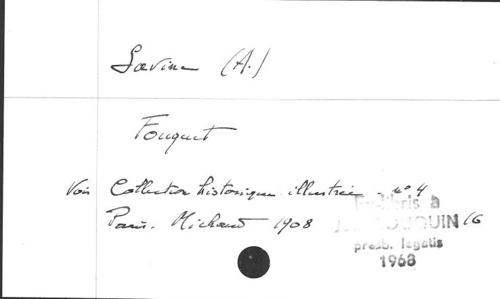 Savine (A.)
Fouquet
Voir Collection historique illustrée n° 4
Paris. Michaud 1908 16
Ex libris à
presb. legatis
1968